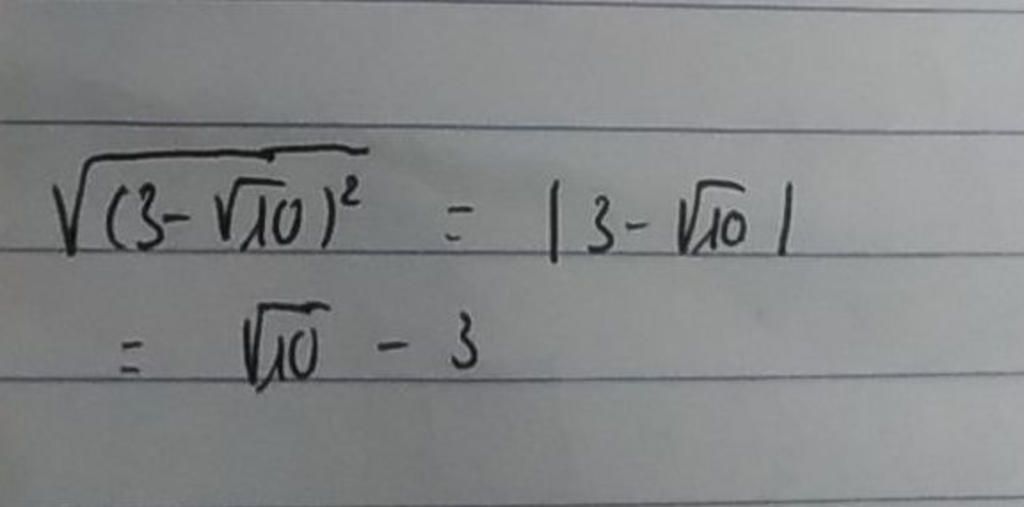 √(3-√10)² = |3-√10|
= √10 - 3